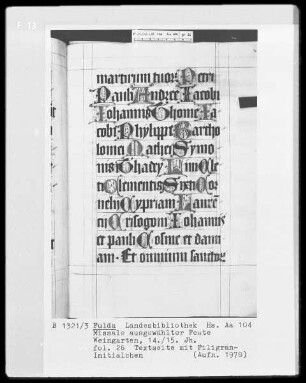 martirum tuor. Petri
Pauli Andree Iacobi
Iohannis Thome Ia
cobi Phylippi Bartho
lomei Mathei Symo
nis Thadey Lini Cle
ti Clementis Sixti Cor
nelii Cypriani Laure
cii Crisogoni Iohannis
et pauli Cosme et dami
ani. Et omnium sanctor
B 1321/3 Fulda Landesbibliothek Hs. Aa 104
Missale ausgewählter Feste
Weingarten, 14./15. Jh.
fol. 26 Textseite mit Filigran-
Initialchen (Aufn. 1978)